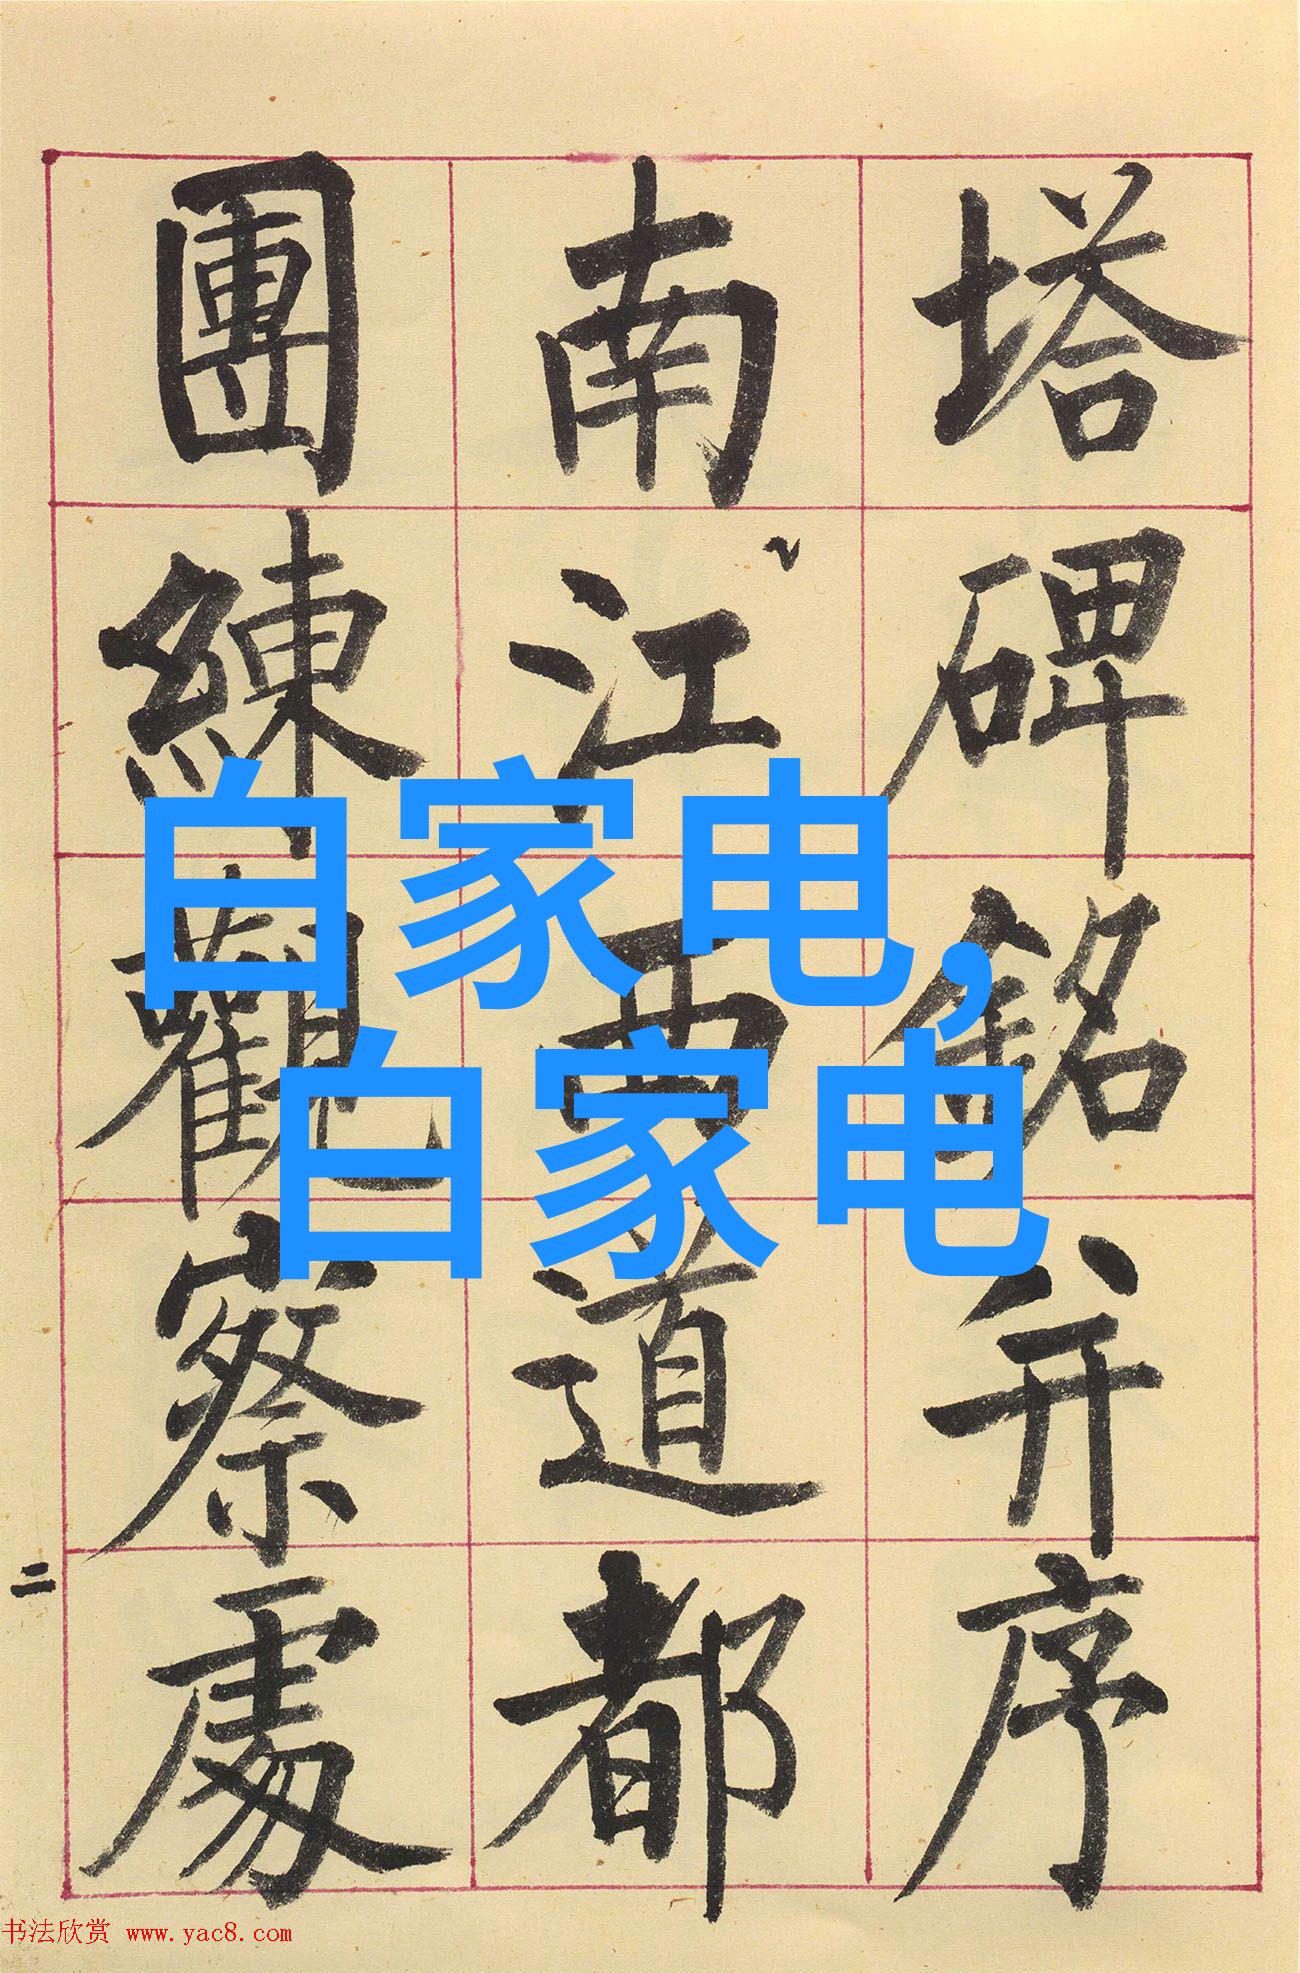 塔碑銘并序
南江西道都
團練觀察處
二
白家电,
白家电
书法欣赏 www.yac8.com